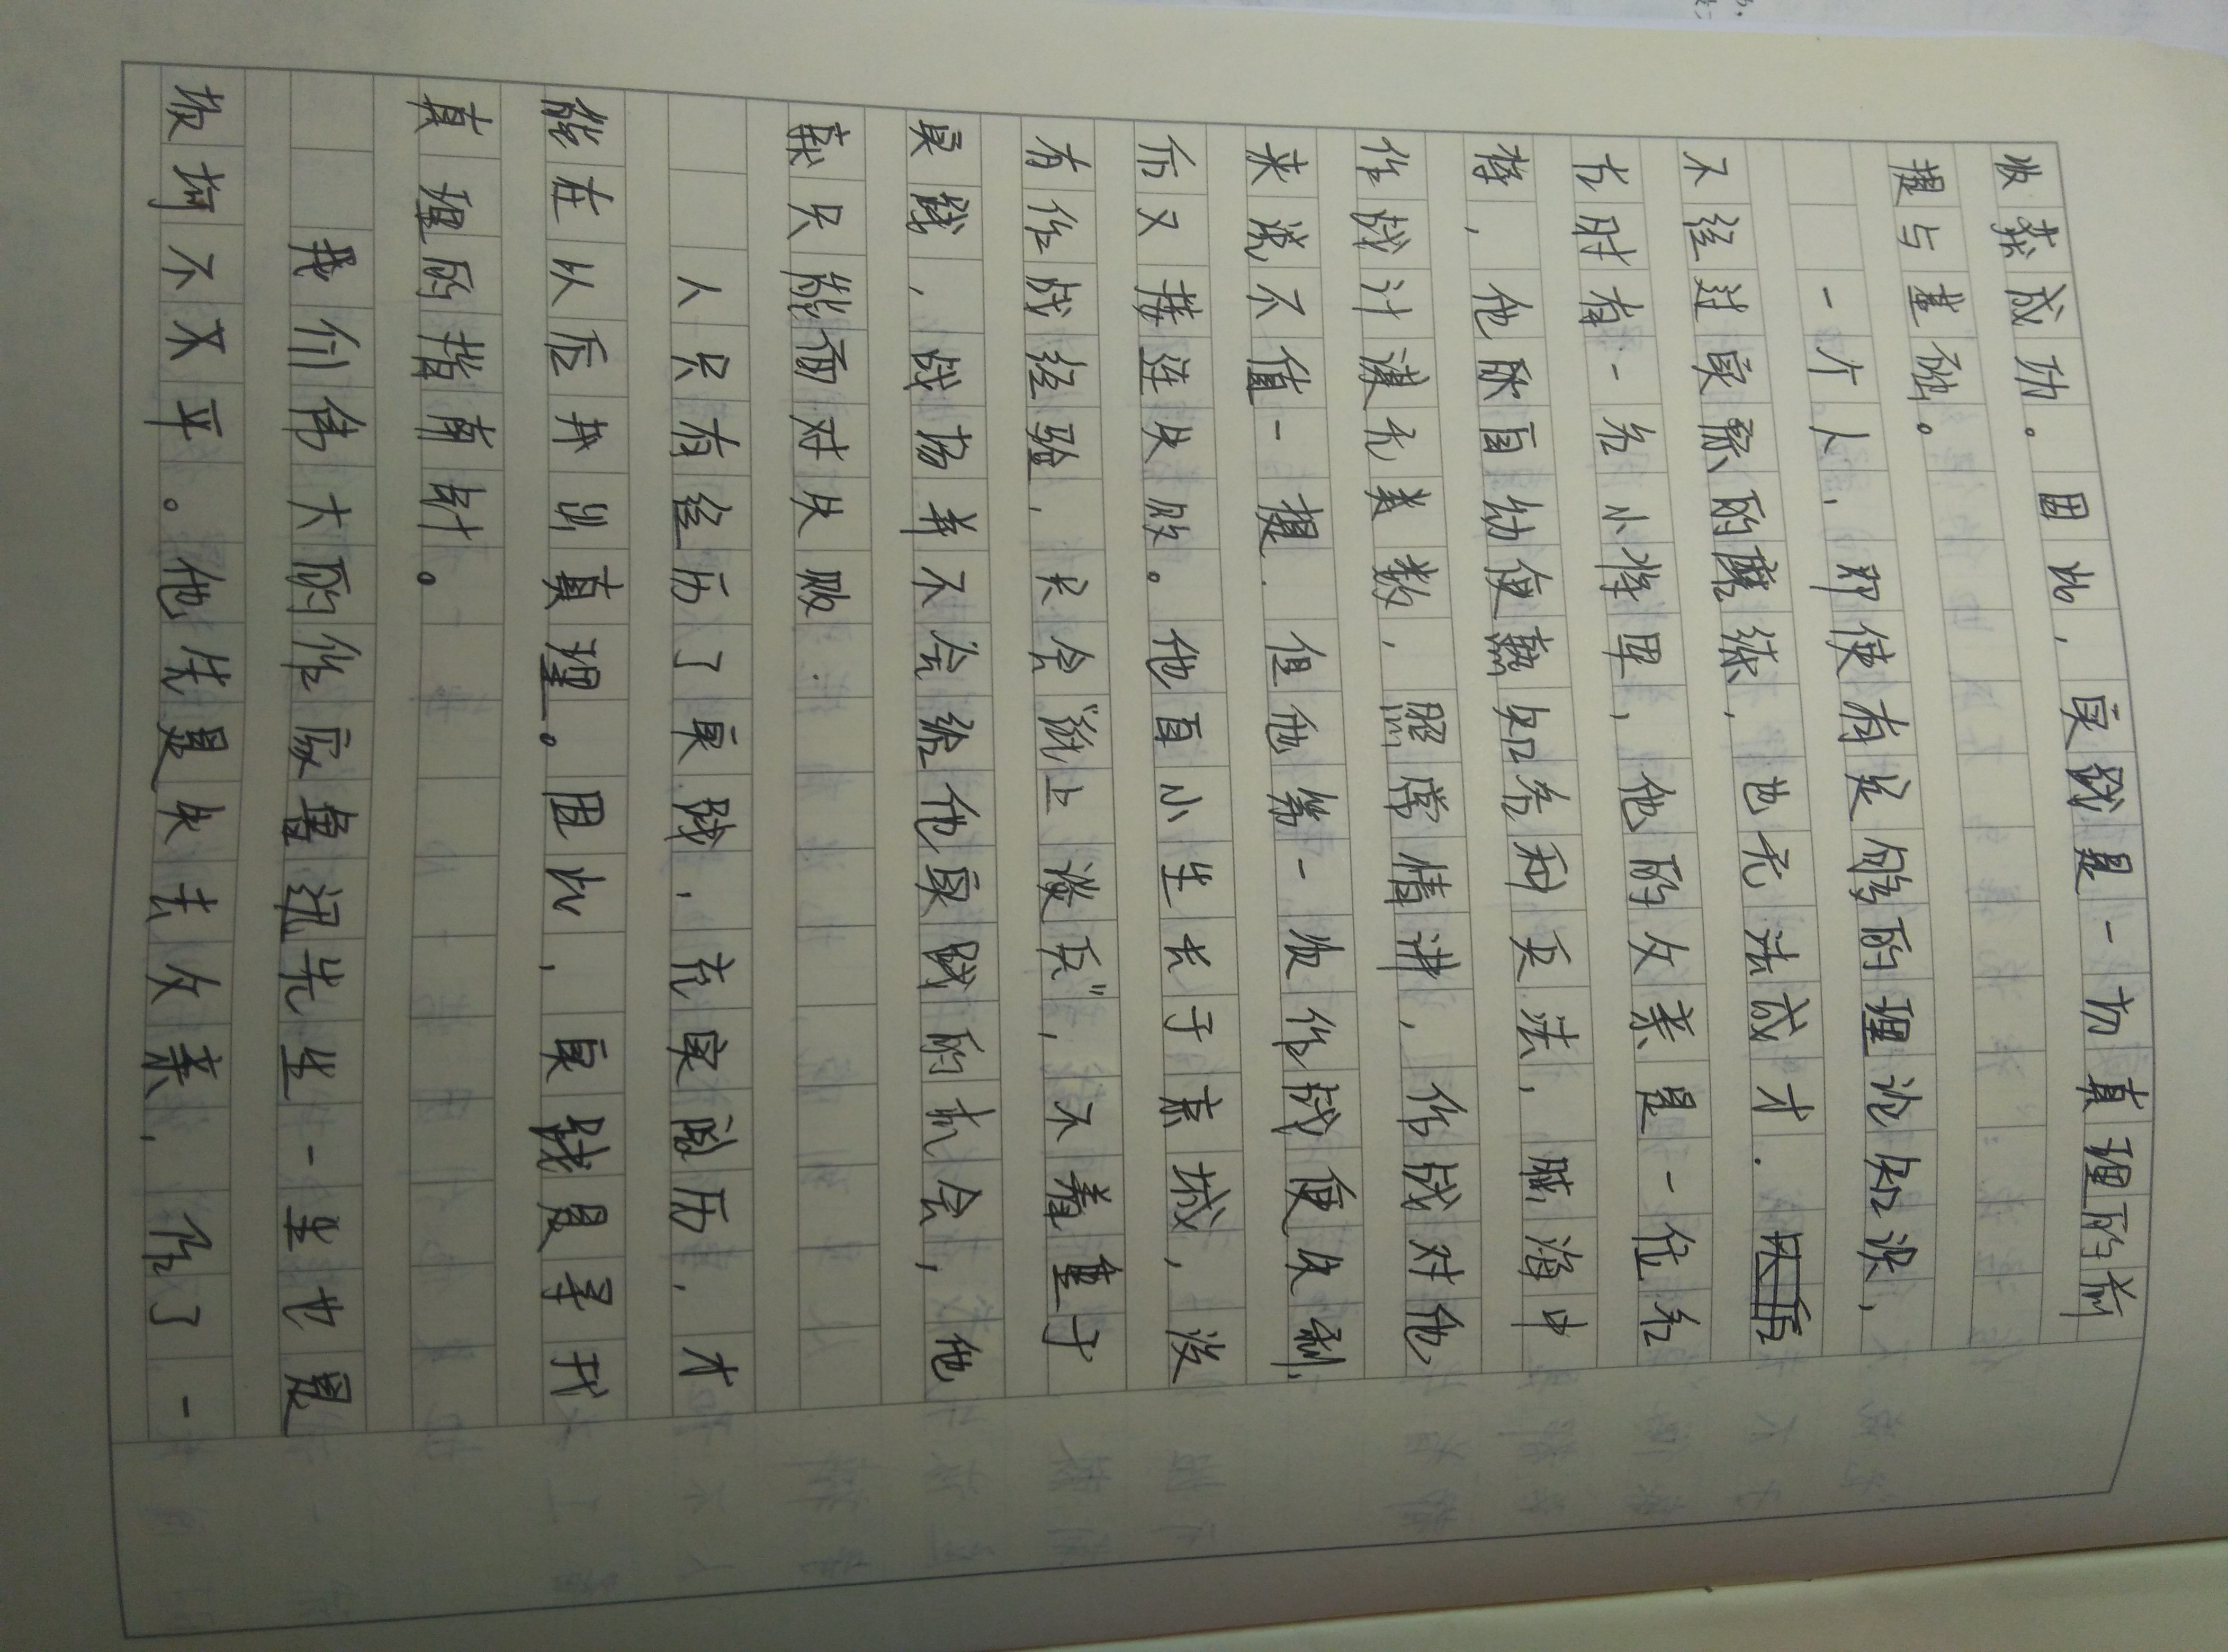 收获成功。因此，实践是一切真理的前
提与基础。
一个人，即使有足够的理论知识，
不经过实际的磨练，也无法成才.
古时有一名小将军，他的父亲是一位名
将，他所自幼便熟知各种兵法，脑海中
作战计谋无数，照常情讲，作战对他
来说不值一提.但他第一次作战便失利,
而又接连失败。他自小生长于京城，没
有作战经验，只会“纸上谈兵”，不着重于
实践，战场并不会给他实践的机会，他
只能面对失败.
人只有经历了实践，充实阅历，才
能在从后寻出真理。因此，实践是寻找
真理的指南针。
我们伟大的作家鲁迅先生一生也是
坎坷不太平。他先是失去父亲，了一